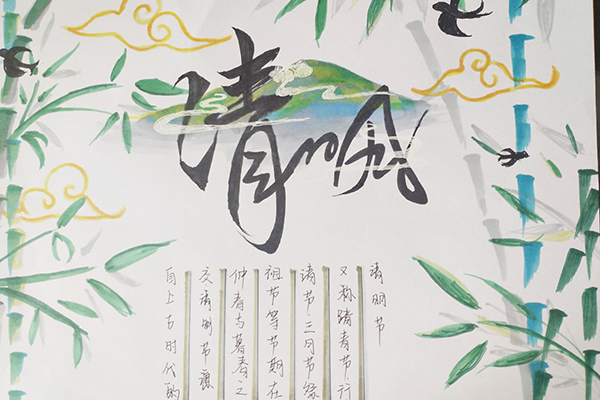 清明
清明节
又称踏青节行
清节三月节祭
祖节等节期在
仲春与暮春之
交清明节源
自上古时代的